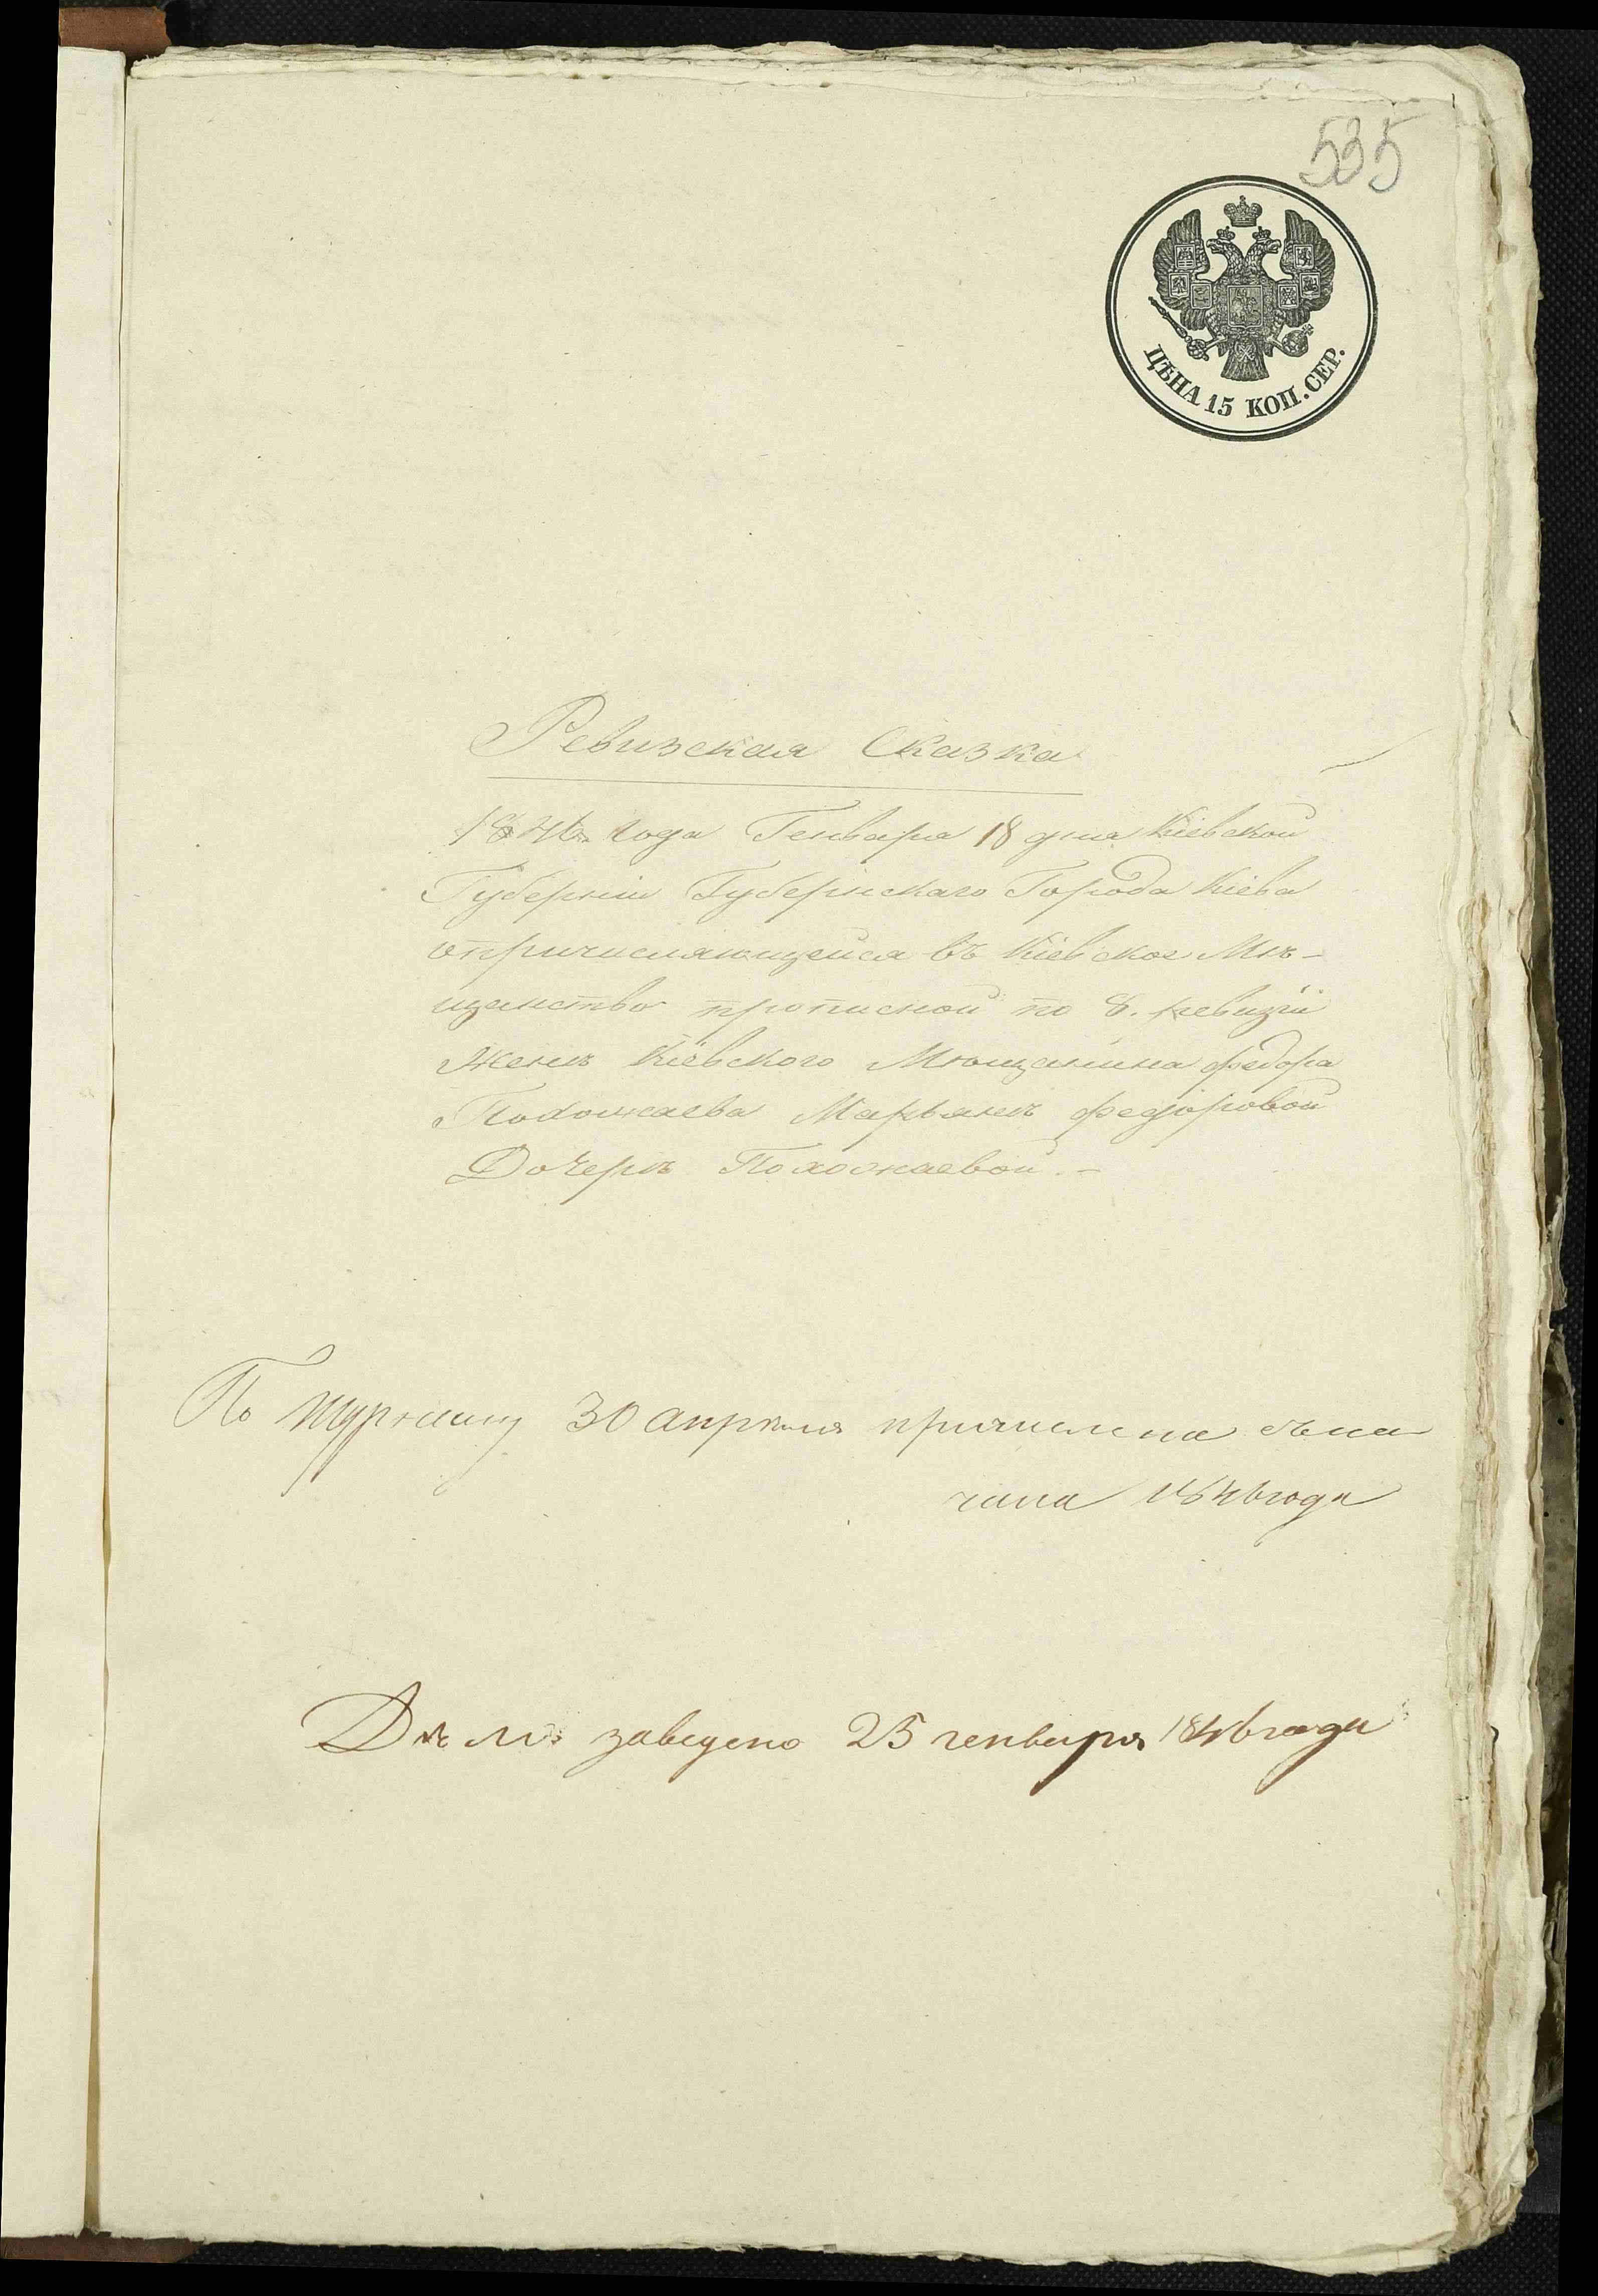 535
ЦѢНА 15 КОП. СЕР.
Ревизская Сказка
1846 года Генваря 18 дня Кіевской
Губерніи Губернскаго Города Кіева
опричисляющейся въ Кіевское Мѣ-
щанство прописной по 8. ревизіи
Женѣ Кіевского Мѣщанина Федора
Походжаева Марьянѣ Федоровой
Дочерѣ Походжаевой.-
По журналу 30 апрѣля причислена съ на
чала 1846 года
Дѣло заведено 25 генваря 1846 года